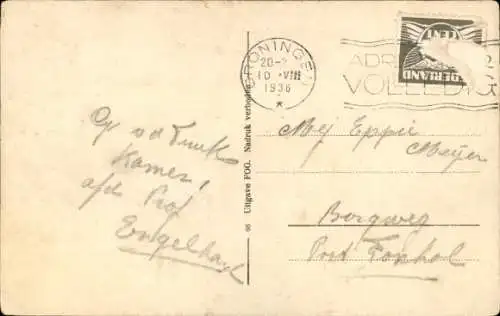 GRONINGEN
20-2
10 VIII
1936
ADRE
VOLLEDIG
CENT
NEDERLAND
Mej Eppie
Meijer
Borgweg
Post Foxhol
kamer,
afd Prof
Engelhard
66 Uitgave FOG. Nadruk verboden